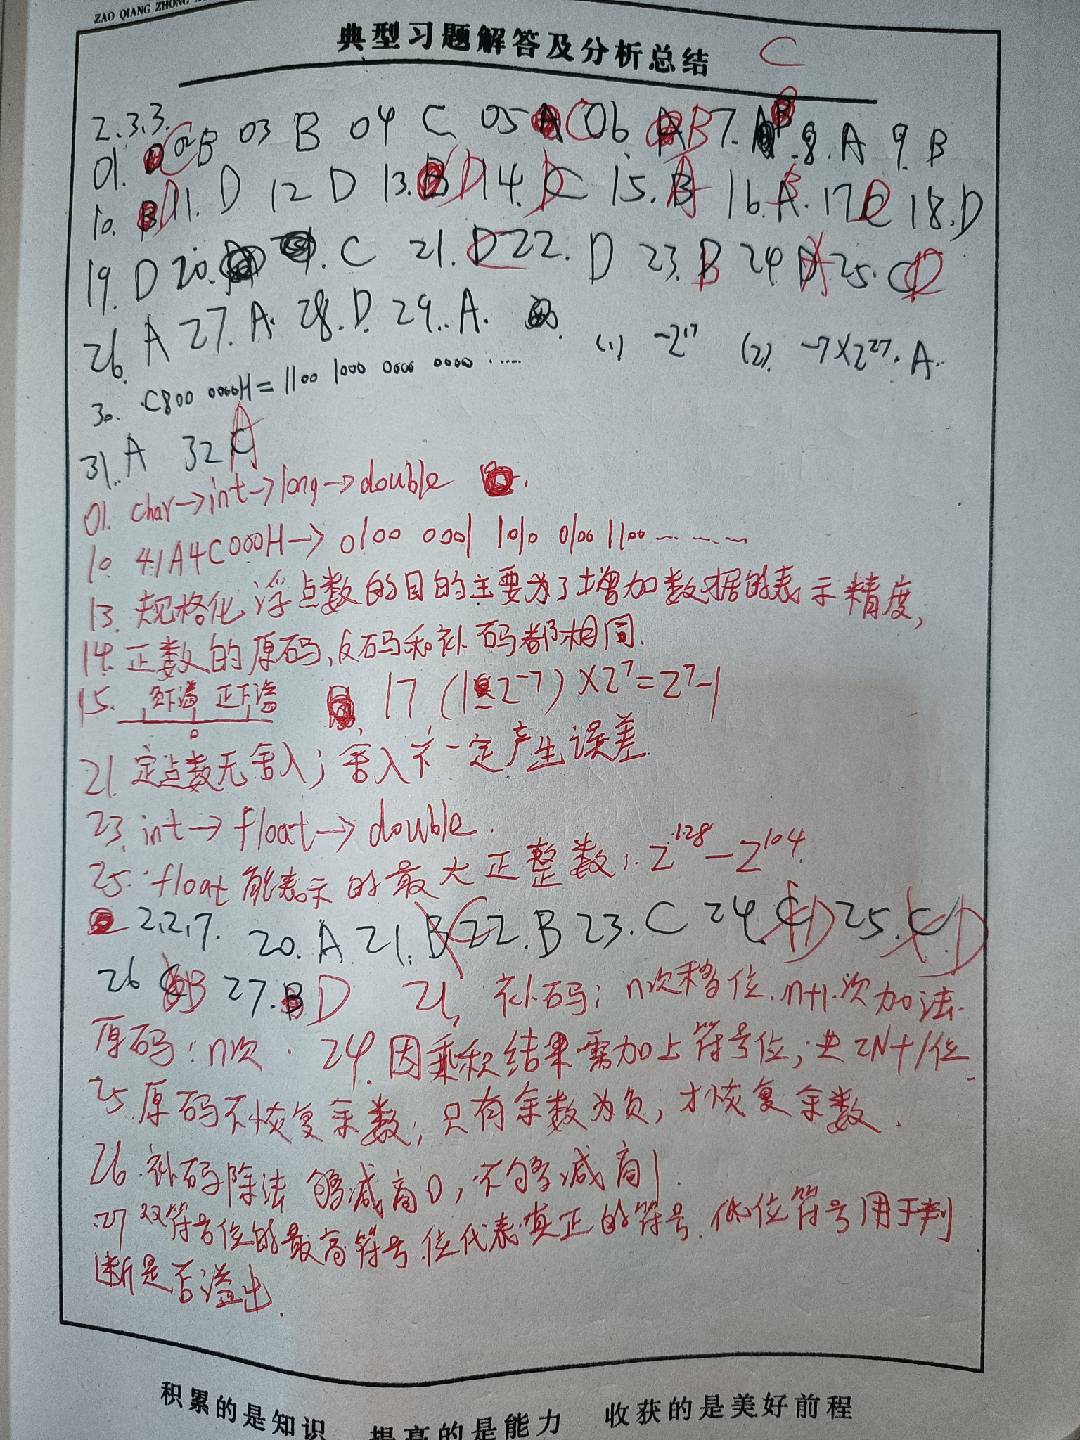 ZAO QIANG ZHONG
典型习题解答及分析总结 C
2.3.3.
01. C 02 B 03 B 04 C 05 C 06. B 7. B 8. A 9. B
10. D 11. D 12 D 13. D 14. C 15. A 16. A. 17 C 18. D
19. D 20. C 21. C 22. D 23. B 24 A 25. D
26. A 27. A. 28. D. 29. A.
30. C800 0000H = 1100 1000 0000 0000 ...... (1) -2^17 (2) -7×2^27. A.
31. A 32 A
01. char→int→long→double
10. 41A4C000H→ 0100 0001 1010 0100 1100 ......
13. 规格化浮点数的目的主要为了增加数据的表示精度,
14. 正数的原码、反码和补码都相同.
15. 负下溢 正下溢 0 17 (1-2^-7)×2^7=2^7-1
21. 定点数无舍入; 舍入不一定产生误差.
23. int→float→double.
25. float能表示的最大正整数: 2^128-2^104.
2.2.7. 20. A 21. B C 22. B 23. C 24. C D 25. C D
26 B 27. B D 21. 补码: n次移位, n+1次加法.
原码: n次. 24. 因乘积结果需加上符号位; 共2N+1位
25. 原码不恢复余数; 只有余数为负, 才恢复余数.
26. 补码除法 够减商0, 不够减商1.
27 双符号位的最高符号位代表真正的符号. 低位符号用于判
断是否溢出.
积累的是知识 提高的是能力 收获的是美好前程